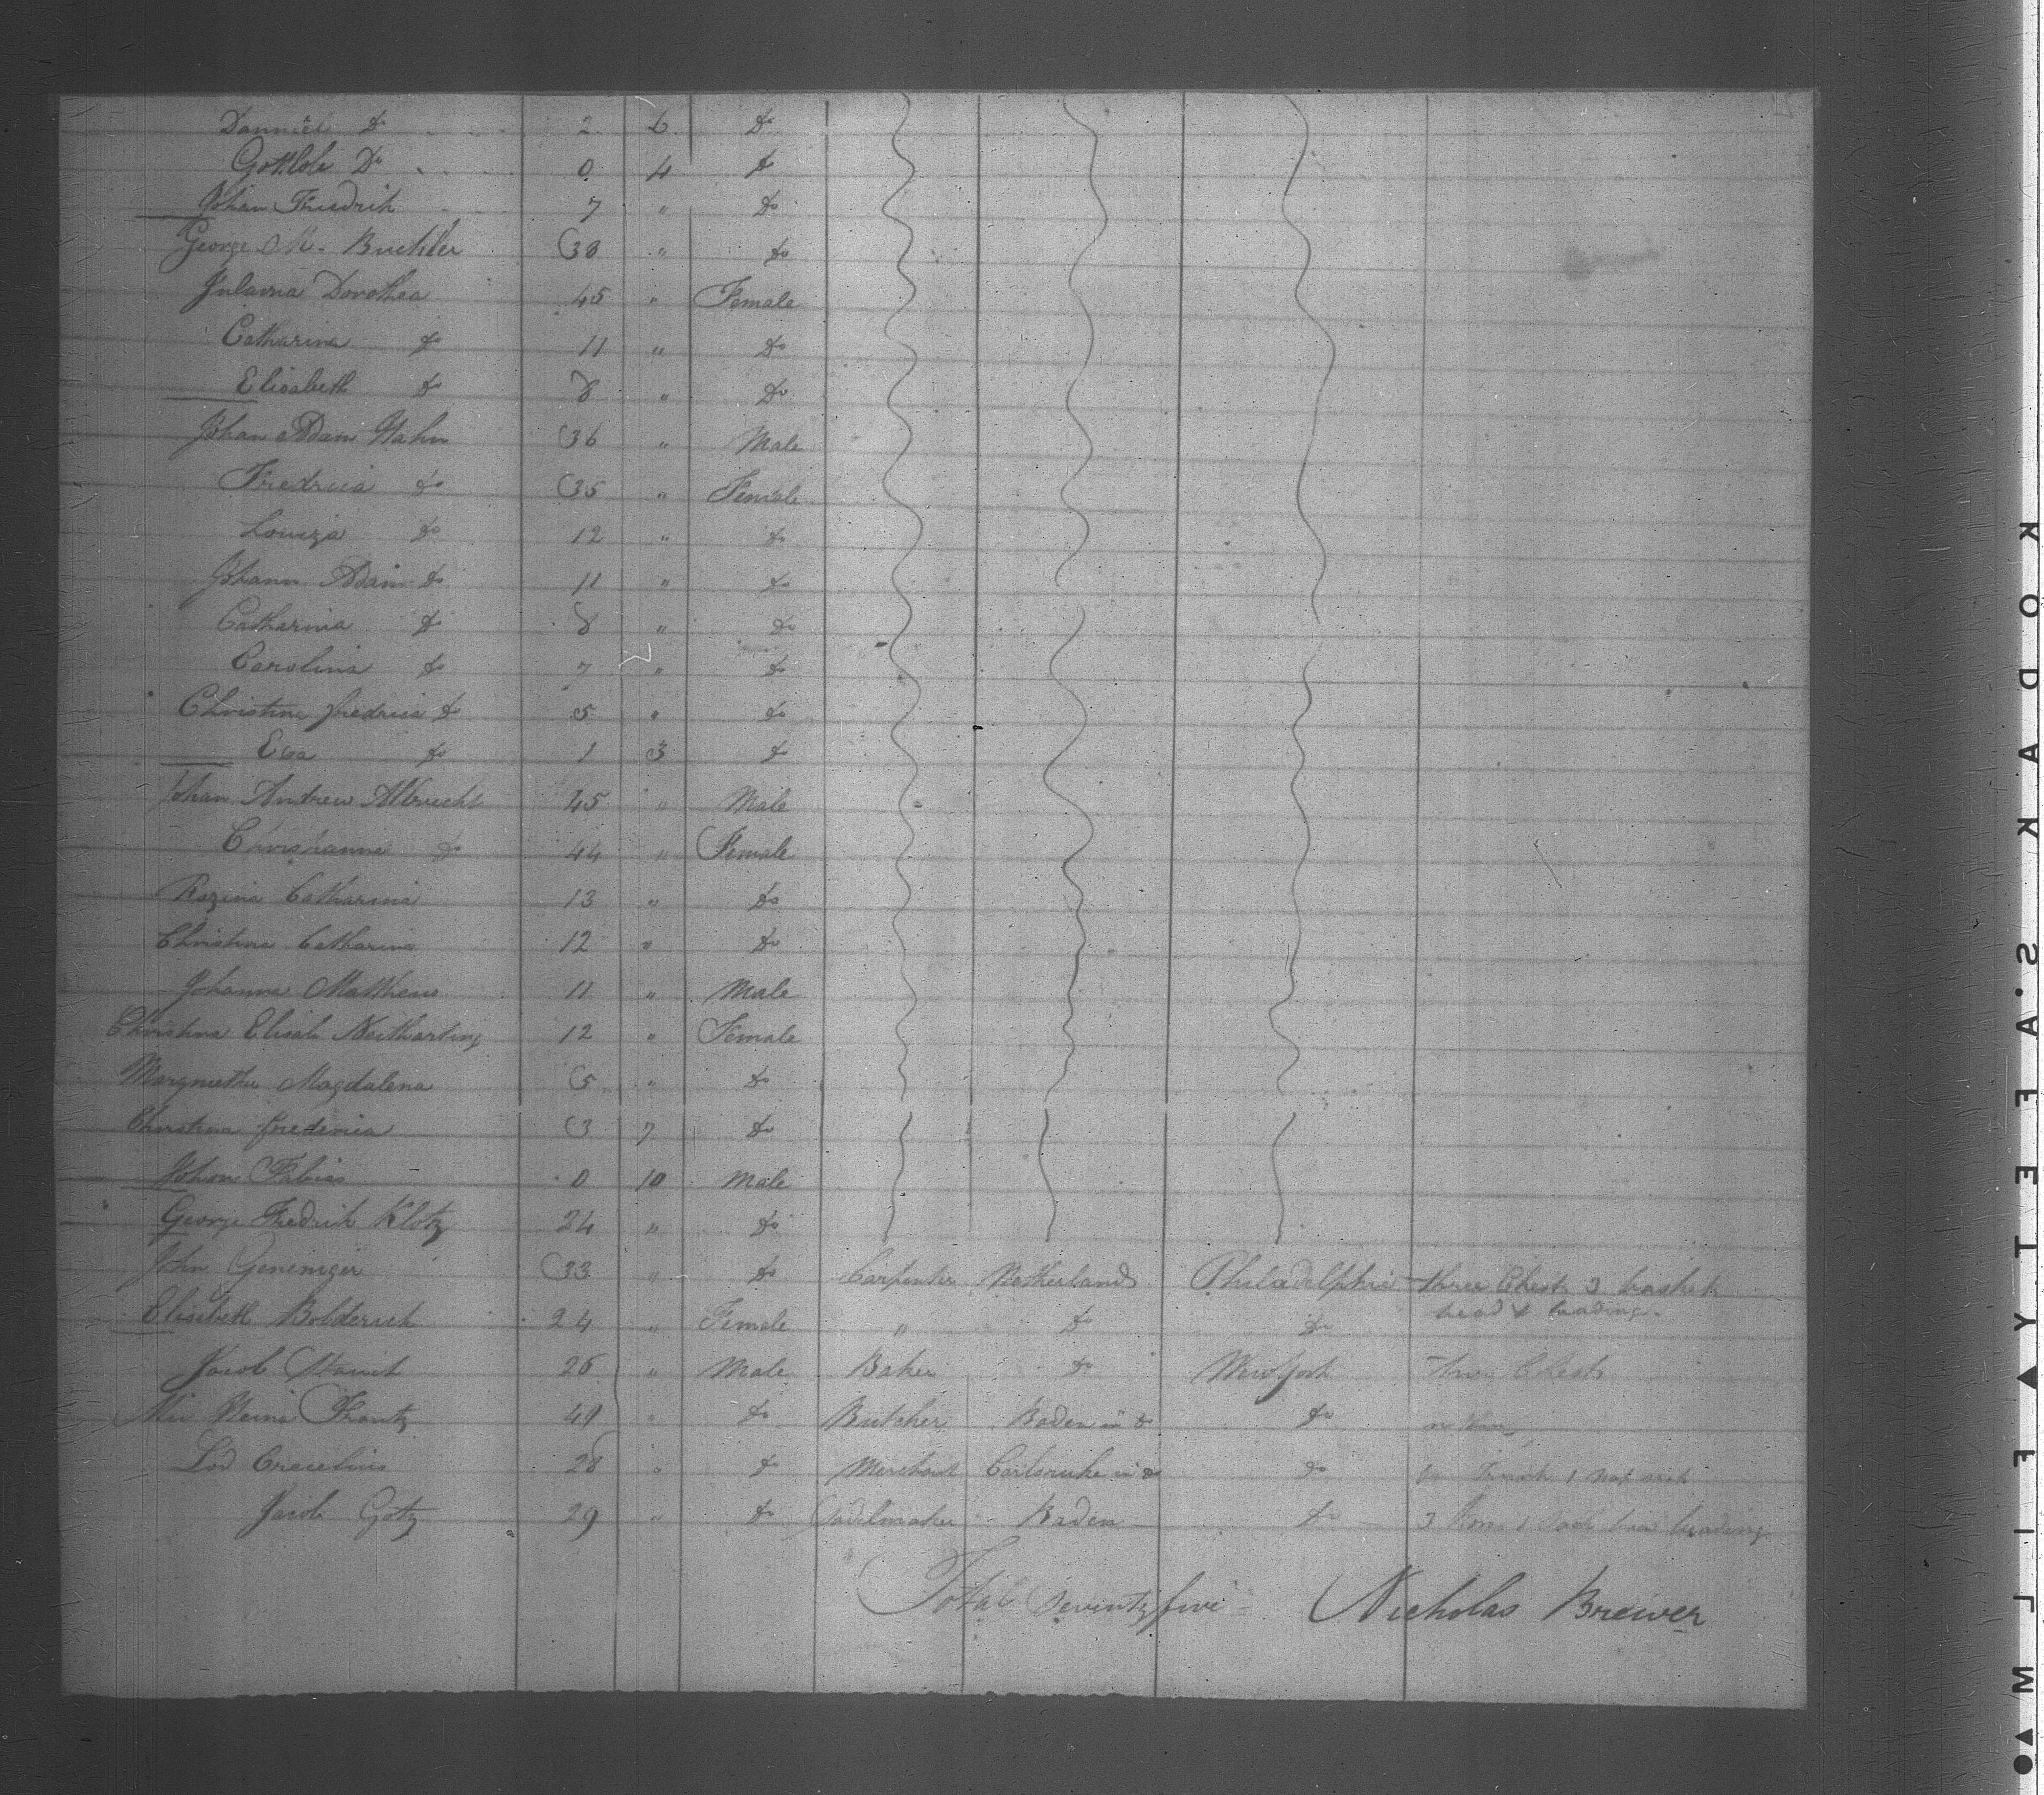 Danniel Do 2 6 Do
Gottlob Do 0 4 do
Johan Friedrik 7 " Do
George M. Buchler 38 " do
Julavna Dorothea 45 " Female
Catharina do 11 " Do
Elisabeth do 8 " Do
Johan Adam Hahn 36 " Male
Fredrica do 35 " Female
Louiza do 12 " do
Johann Adam do 11 " do
Catharina do 8 " do
Carolina do 7 " do
Christina fredrica do 5 " do
Eva do 1 3 do
Johan Andrew Albrecht 45 " Male
Christianna do 44 " Female
Rozina Catharina 13 " do
Christina Catharina 12 " do
Johanna Mattheus 11 " Male
Christina Elisab Neitharting 12 " Female
Margretha Magdalena 5 " do
Christina frederica 3 7 do
Johan Fabias 0 10 Male
George Fredrik Klotz 24 " do
John Geneniger 33 " do Carpenter Netherlands Philadelphia three Chests 3 baskets
bead & beading.
Elisebeth Bolderich 24 " Female " do do
Jacob 26 " Male Baker do New York Chests
Frantz 49 " do Butcher Baden in do do
Lod 28 " do Merchant Carlsruhe in do do 1
Jacob Gotz 29 " do Sadelmaker Baden do 3 1 Sack beading
Total Seventyfive Nicholas Brewer
KODAK S.A.F.E.T.Y ▲ F I L M